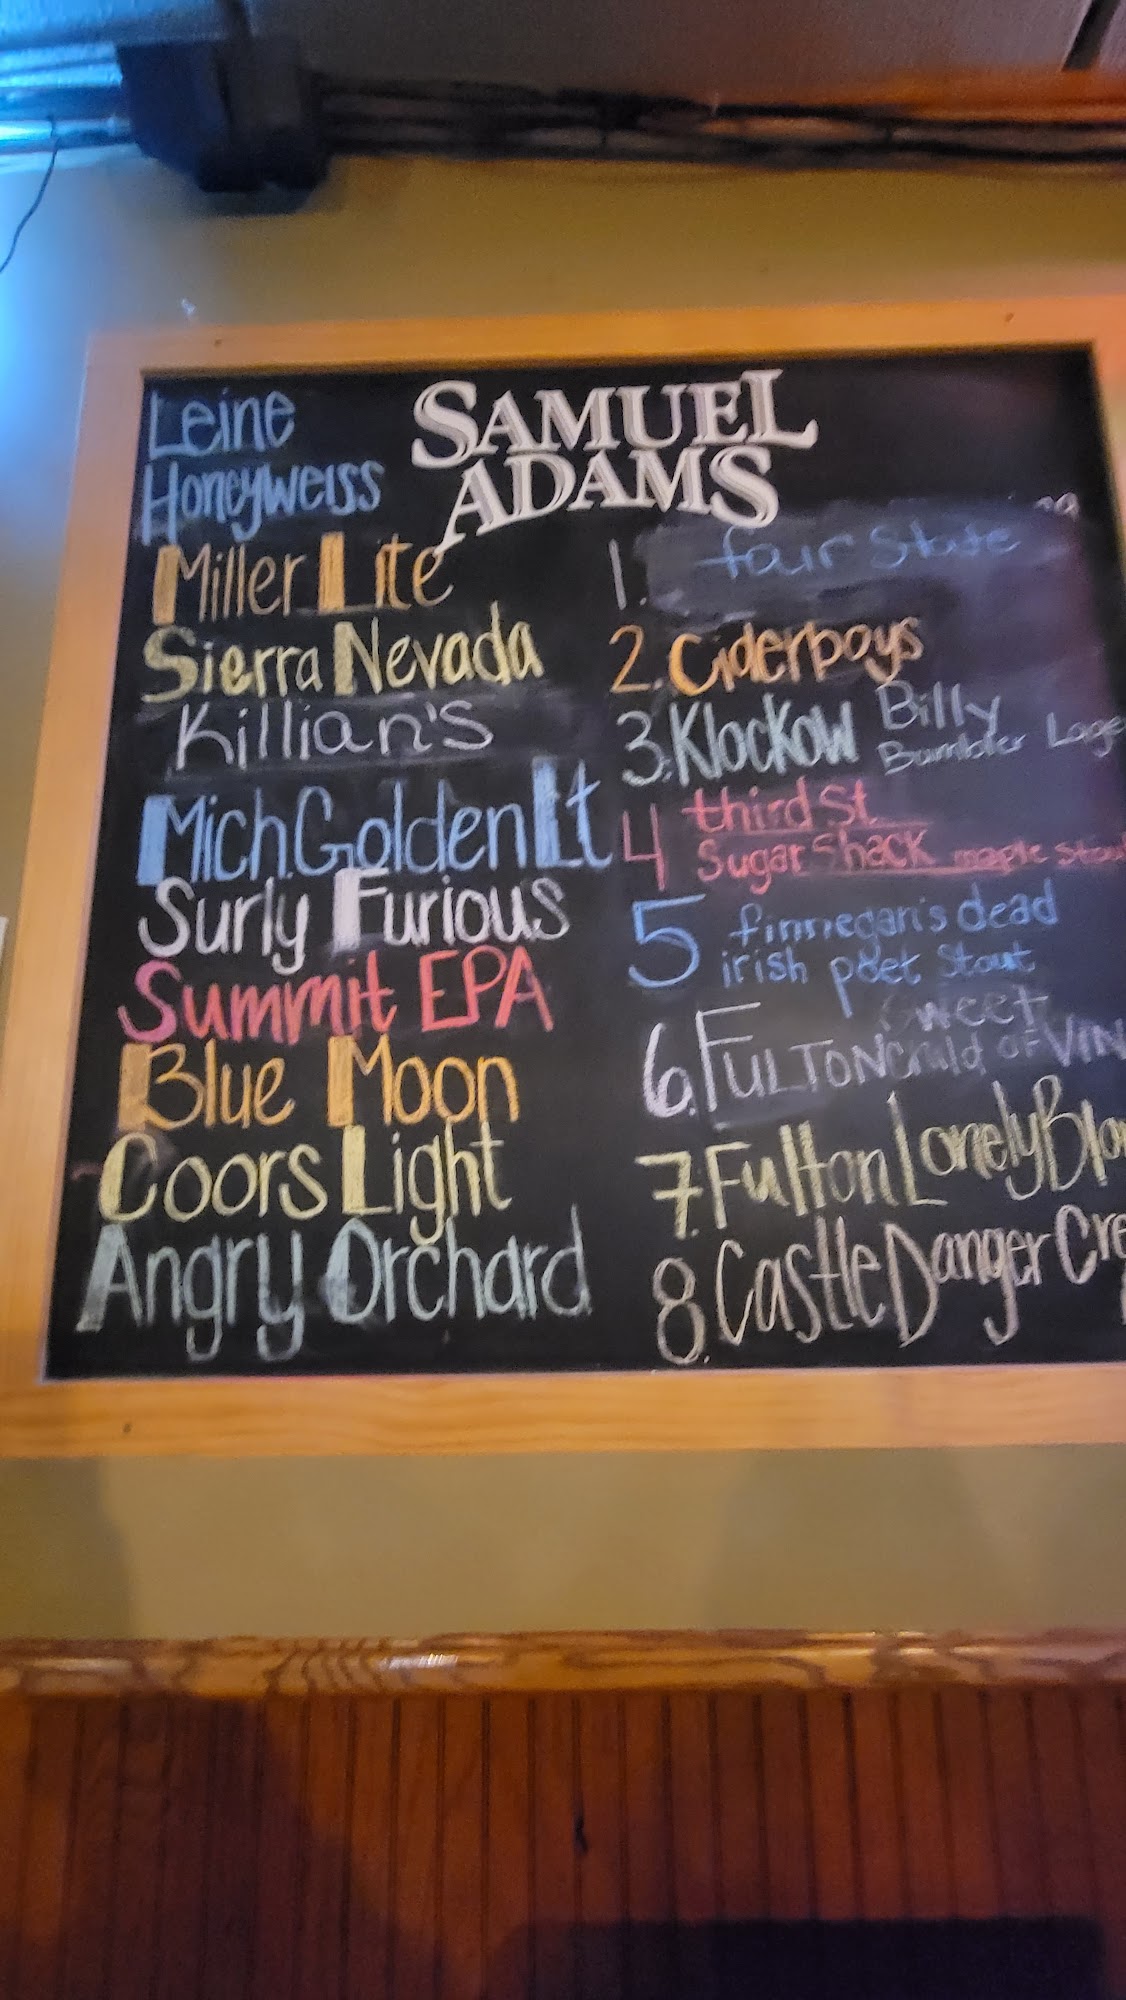 SAMUEL
ADAMS
Leine
Honeyweiss
Miller Lite
Sierra Nevada
Killian's
Mich Golden Lt
Surly Furious
Summit EPA
Blue Moon
Coors Light
Angry Orchard
1. fair State
2. Ciderboys
3. Klockow Billy
Bumbler Lage
4 third St
Sugar Shack maple Stou
5 finnegan's dead
irish poet Stout
6. FULTON Sweet
Child of VIN
7. Fulton Lonely Blo
8. Castle Danger Cre